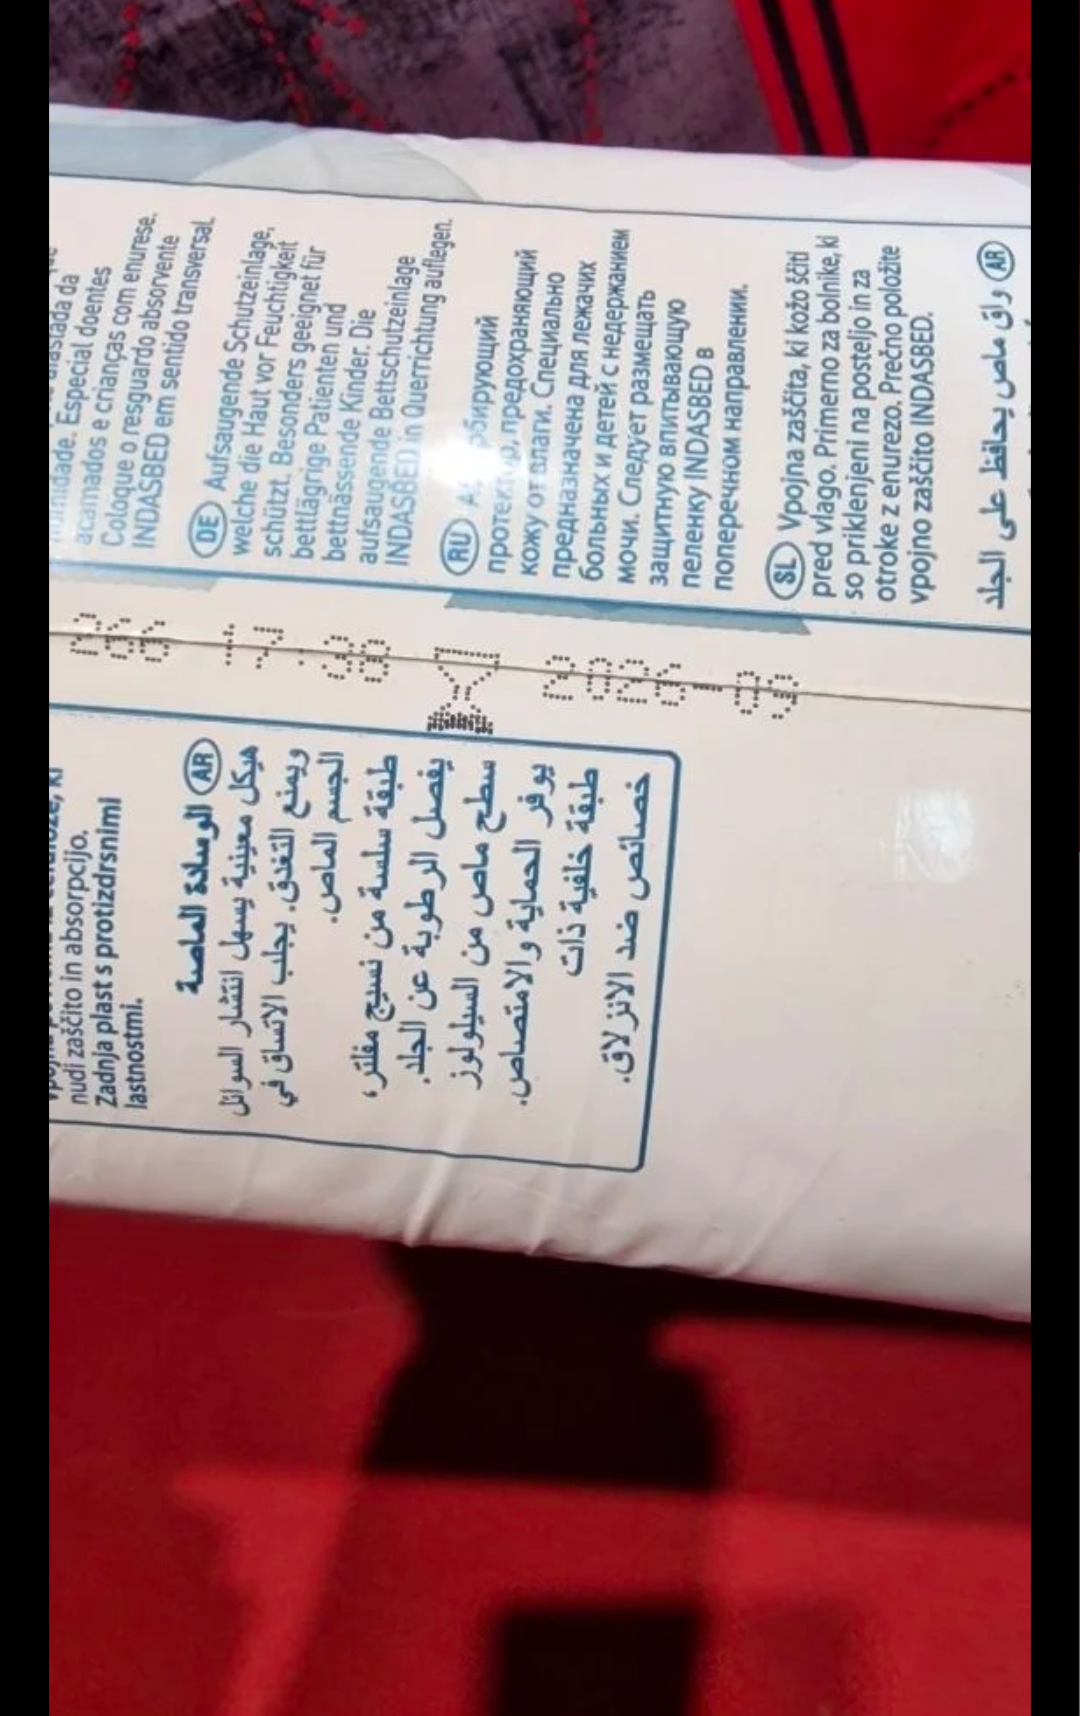 Especial doentes
acamados e crianças com enurese.
Coloque o resguardo absorvente
INDASBED em sentido transversal.
DE Aufsaugende Schutzeinlage,
welche die Haut vor Feuchtigkeit
schützt. Besonders geeignet für
bettlägrige Patienten und
bettnässende Kinder. Die
aufsaugende Bettschutzeinlage
INDASBED in Querrichtung auflegen.
RU
предохраняющий
кожу от влаги. Специально
предназначена для лежачих
больных и детей с недержанием
мочи. Следует размещать
защитную впитывающую
пеленку INDASBED в
поперечном направлении.
SL Vpojna zaščita, ki kožo ščiti
pred vlago. Primerno za bolnike, ki
so priklenjeni na posteljo in za
otroke z enurezo. Prečno položite
vpojno zaščito INDASBED.
AR واق ماص يحافظ على الجلد
2026-03
nudi zaščito in absorpcijo.
Zadnja plast s protizdrsnimi
lastnostmi.
AR الوسادة الماصة
هيكل معينية يسهل انتشار السوائل
ويمنع التغدق. يجلب الاتساق في
الجسم الماص.
طبقة سلسة من نسيج مفلتر،
يفصل الرطوبة عن الجلد.
سطح ماص من السيلولوز
يوفر الحماية والامتصاص.
طبقة خلفية ذات
خصائص ضد الانزلاق.